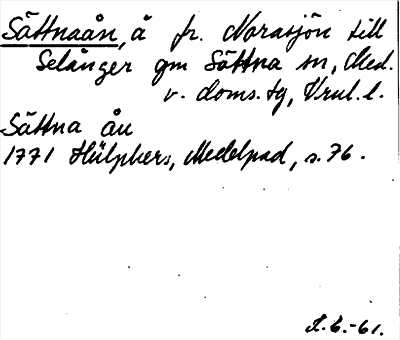 Sättnaån, å fr. Norasjön till
Selånger gm Sättna sn, Med.
v. doms.tg, Vrnl. l.
Sättna ån
1771 Hülphers, Medelpad, s. 76.
-61.